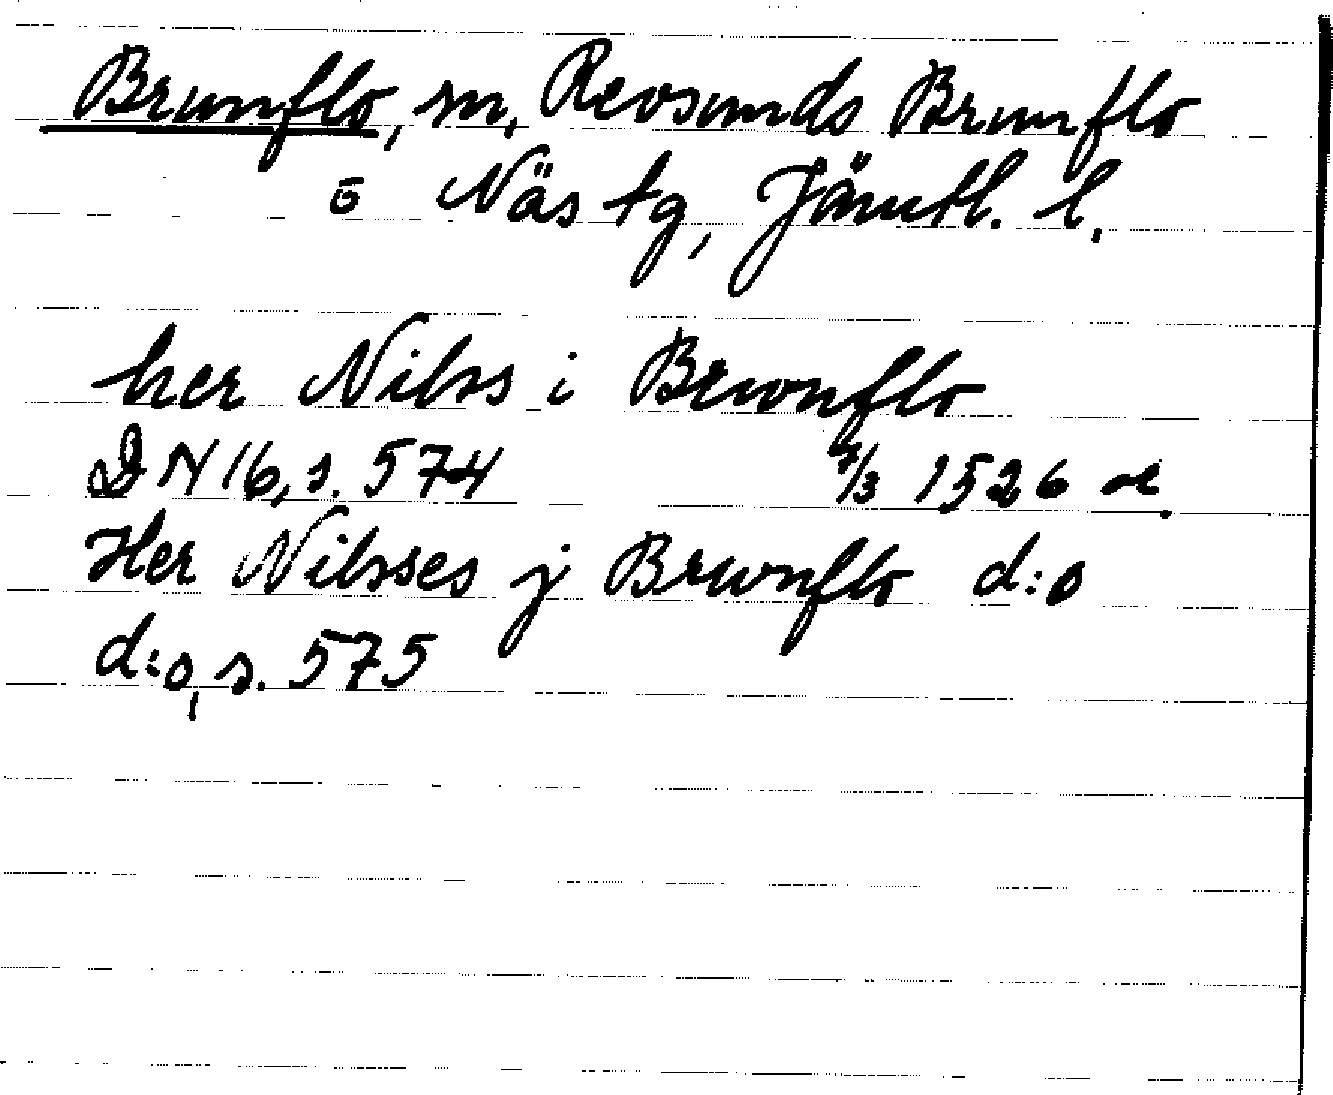 Brunflo, sn, Revsunds Brunflo
o Näs tg, Jämtl. l.
her Nilss i Brwnflo
DN 16, s. 574 7/3 1526 or.
Her Nilsses j Brwnflo d:o
d:o, s. 575